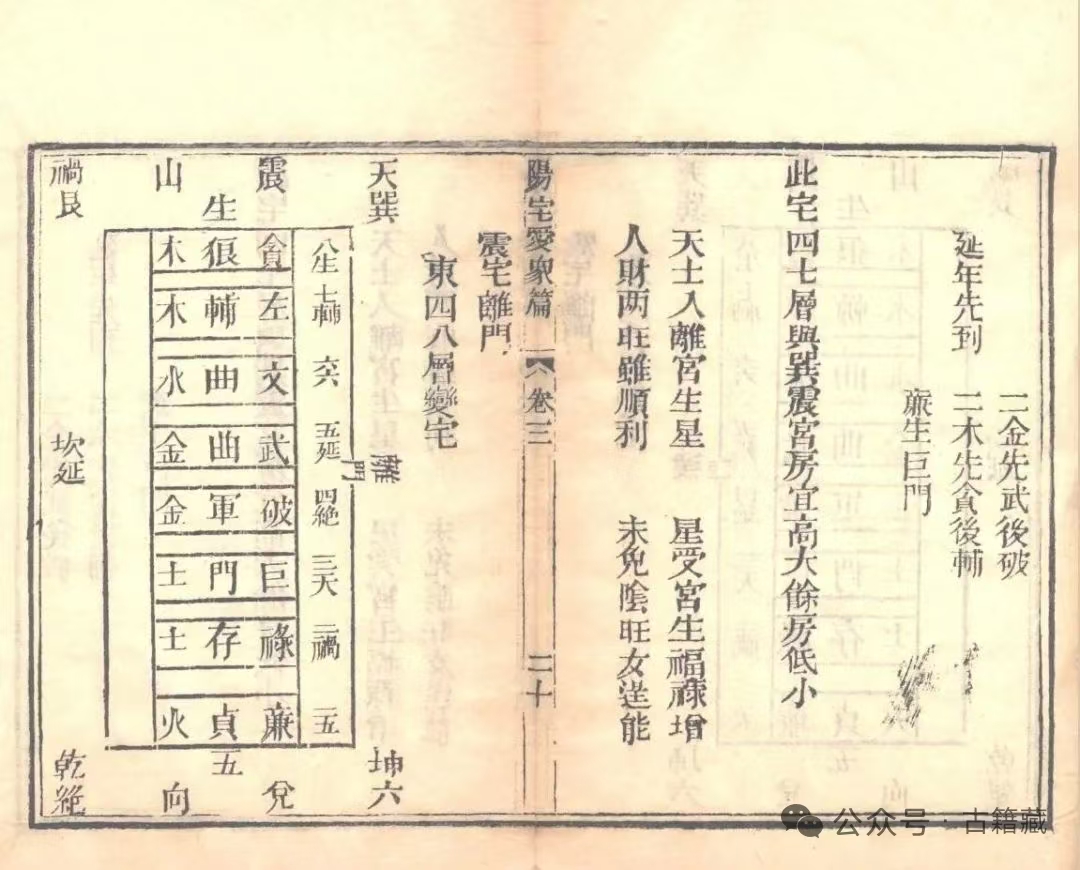 二金先武後破
延年先到 二木先貪後輔
廉生巨門
此宅四七層與巽震宮房宜高大餘房低小
天土入離宮生星 星受宮生福祿增
人財两旺雖順利 未免陰旺女逞能
陽宅愛眾篇 卷三 二十
震宅離門
東四八層變宅
天巽 離門 坤六
八生 七輔 六六 五延 四絕 三天 二禍 一五
震 貪 左 文 武 破 巨 祿 廉 兌
生 狼 輔 曲 曲 軍 門 存 貞 五
山 木 木 水 金 金 土 土 火 向
禍艮 坎延 乾絕
公众号 · 古籍藏